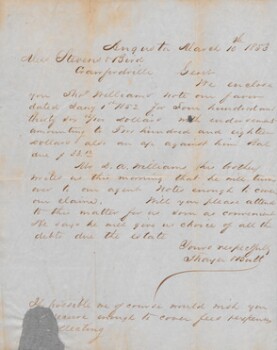 Augusta March 10th 1853
Messrs Stevens & Bird
Crawfordville
Gent
We enclose
you Thos Williams note our favor
dated Jany 1st 1852 for Four hundred and
thirty six Dollars with endorsement
amounting to Two hundred and eighty
dollars also an a/c against him
due
Mr. S. A. Williams his brother
writes us this morning that he will turn
over to our agent Notes enough to cover
our claims. Will you please attend
to this matter for us soon as convenient
He says he will give us choice of all the
debts due the estate
Yours respectfully
Thayer & Butt
If possible we of course would wish you
secure enough to cover fees & expenses
collecting